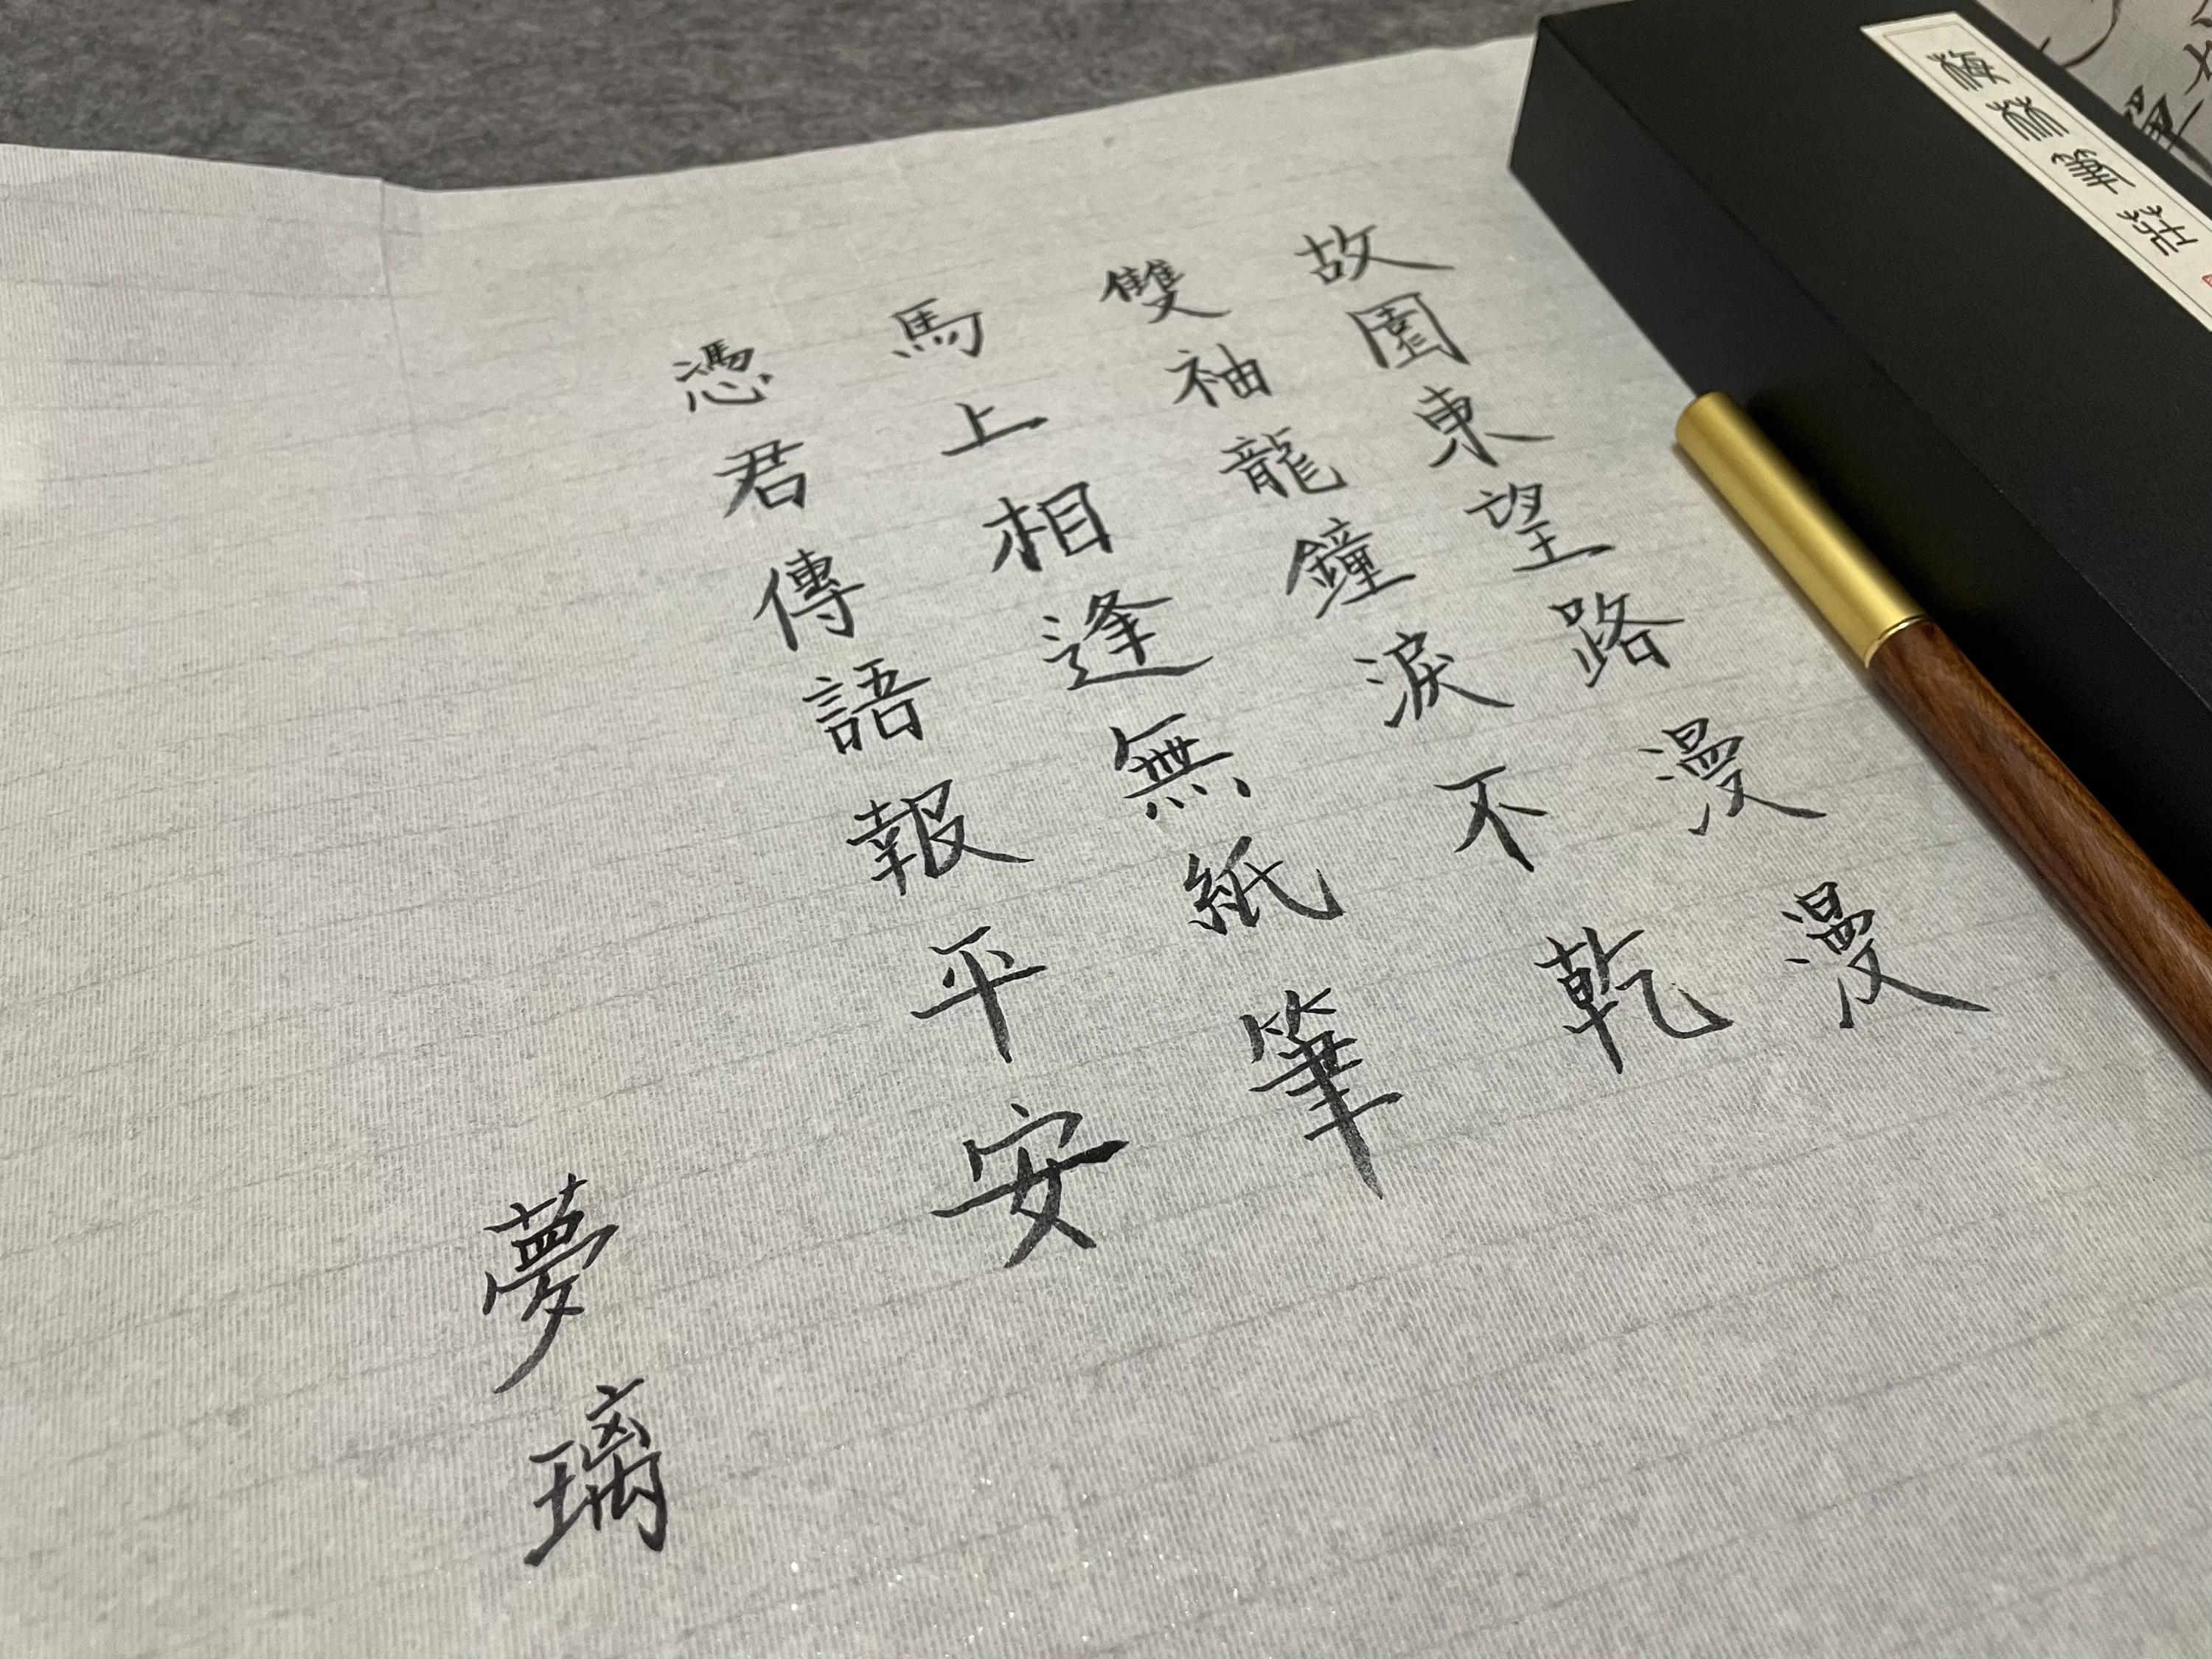 故園東望路漫漫
雙袖龍鐘淚不乾
馬上相逢無紙筆
憑君傳語報平安
夢璃